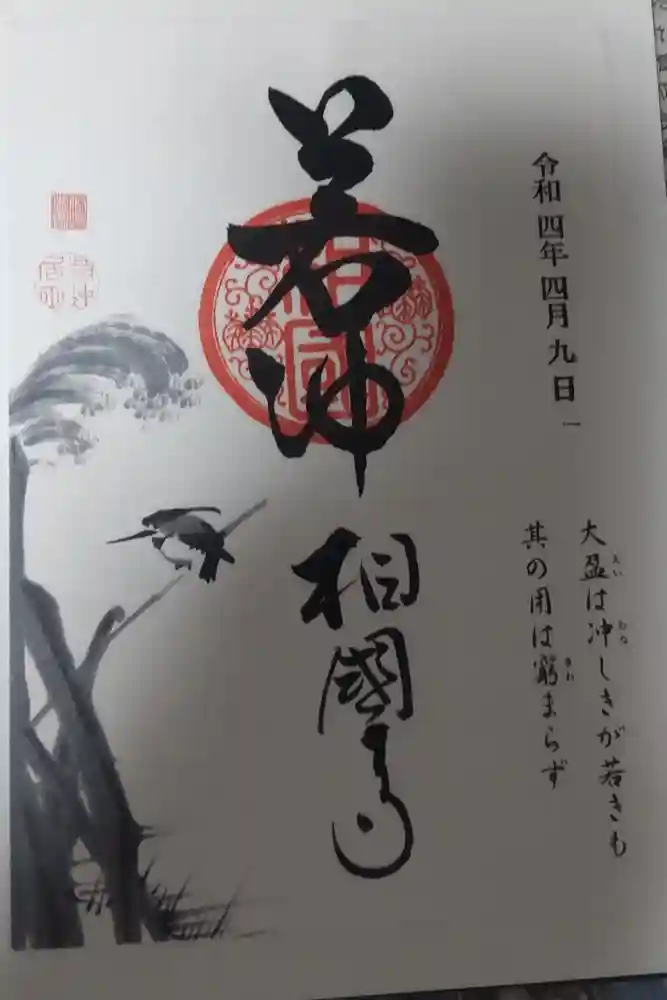 令和四年四月九日
大盈は冲しきが若きも
其の用は窮まらず
若冲
相國寺
相國